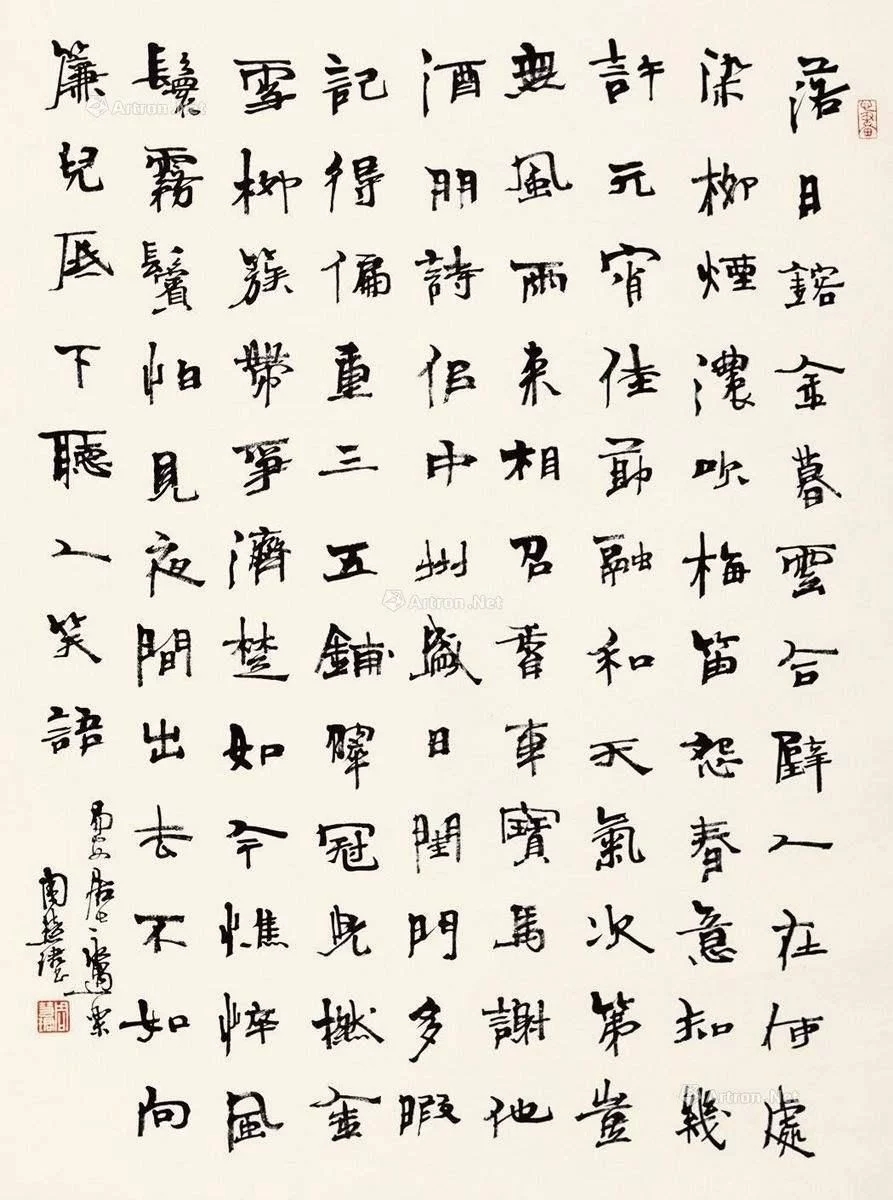 落日鎔金暮雲合璧人在何處
染柳煙濃吹梅笛怨春意知幾
許元宵佳節融和天氣次第豈
無風雨來相召香車寶馬謝他
酒朋詩侶中州盛日閨門多暇
記得偏重三五鋪翠冠兒撚金
雪柳簇帶爭濟楚如今憔悴風
鬟霧鬢怕見夜間出去不如向
簾兒底下聽人笑語
易安居士永遇樂
周慧珺
Artron.Net
Artron.Net
Artron.Net